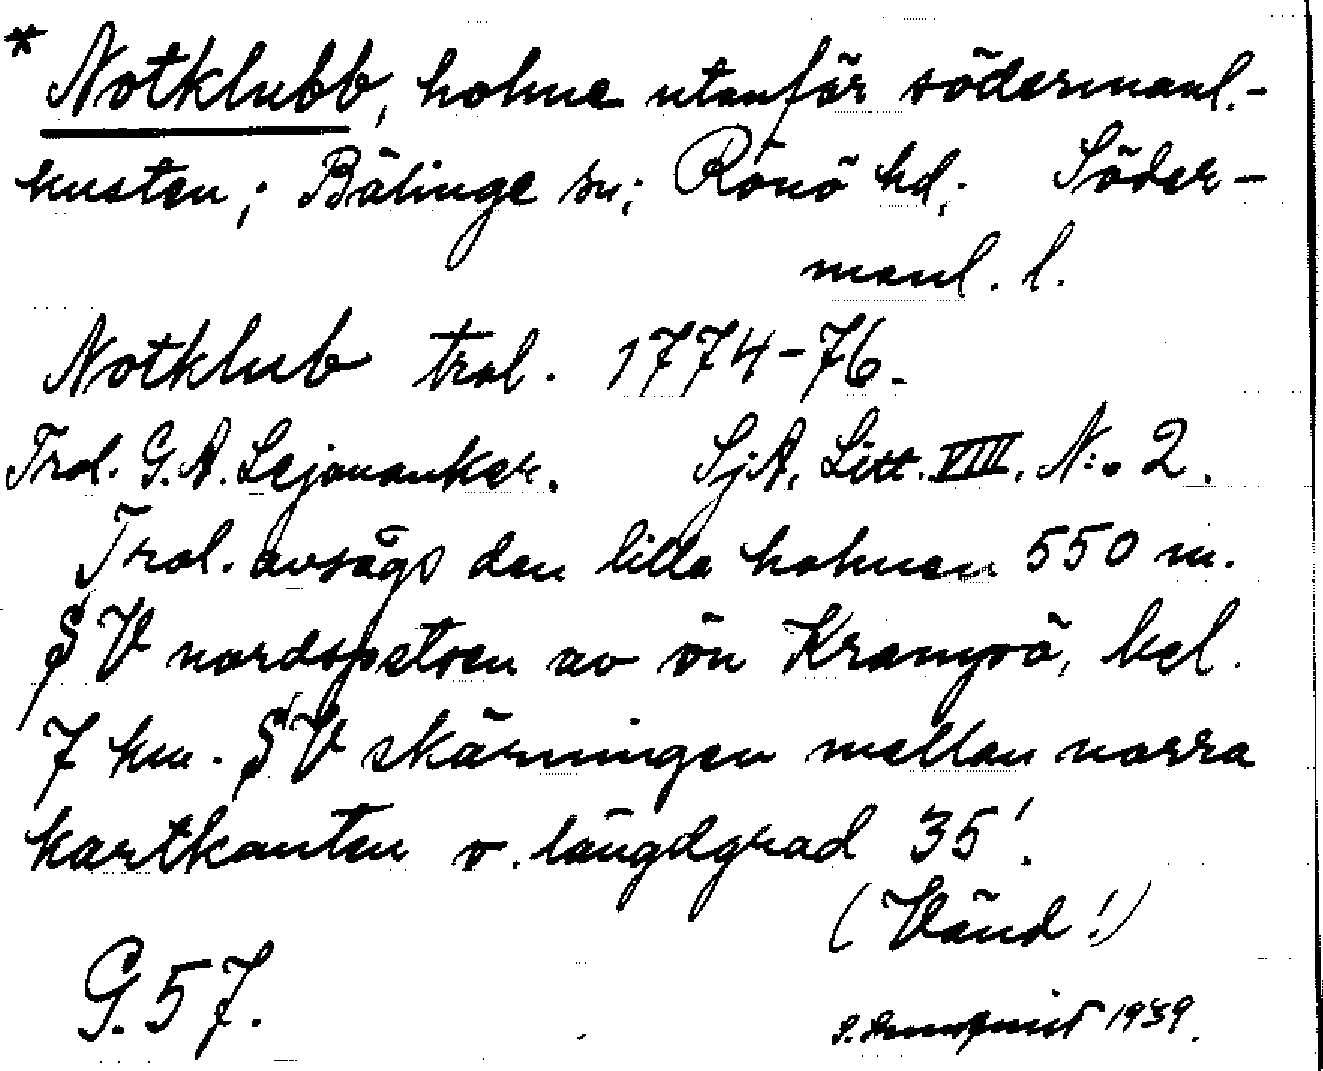 * Notklubb, holme utanför södermanl.-
kusten; Bälinge sn; Rönö hd. Söder-
manl. l.
Notklub trol. 1774-76.
Trol. G. A. Lejonanker. SjA. Litt. VIII. N:o 2.
Trol. avságs den lilla holmen 550 m.
SV nordspetsen av ön Krampö, bel.
7 km. SV skärningen mellan norra
kartkanten o. längdgrad 35'.
(Vänd!)
G. 57.
1939.